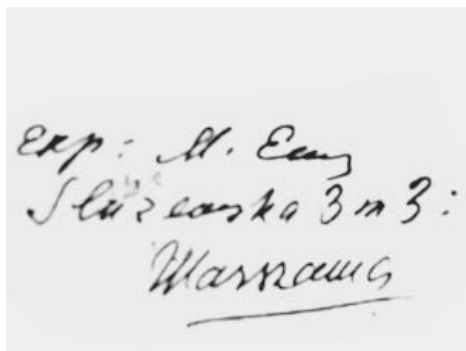 Exp: M.
Służewska 3 m 3:
Warszawa